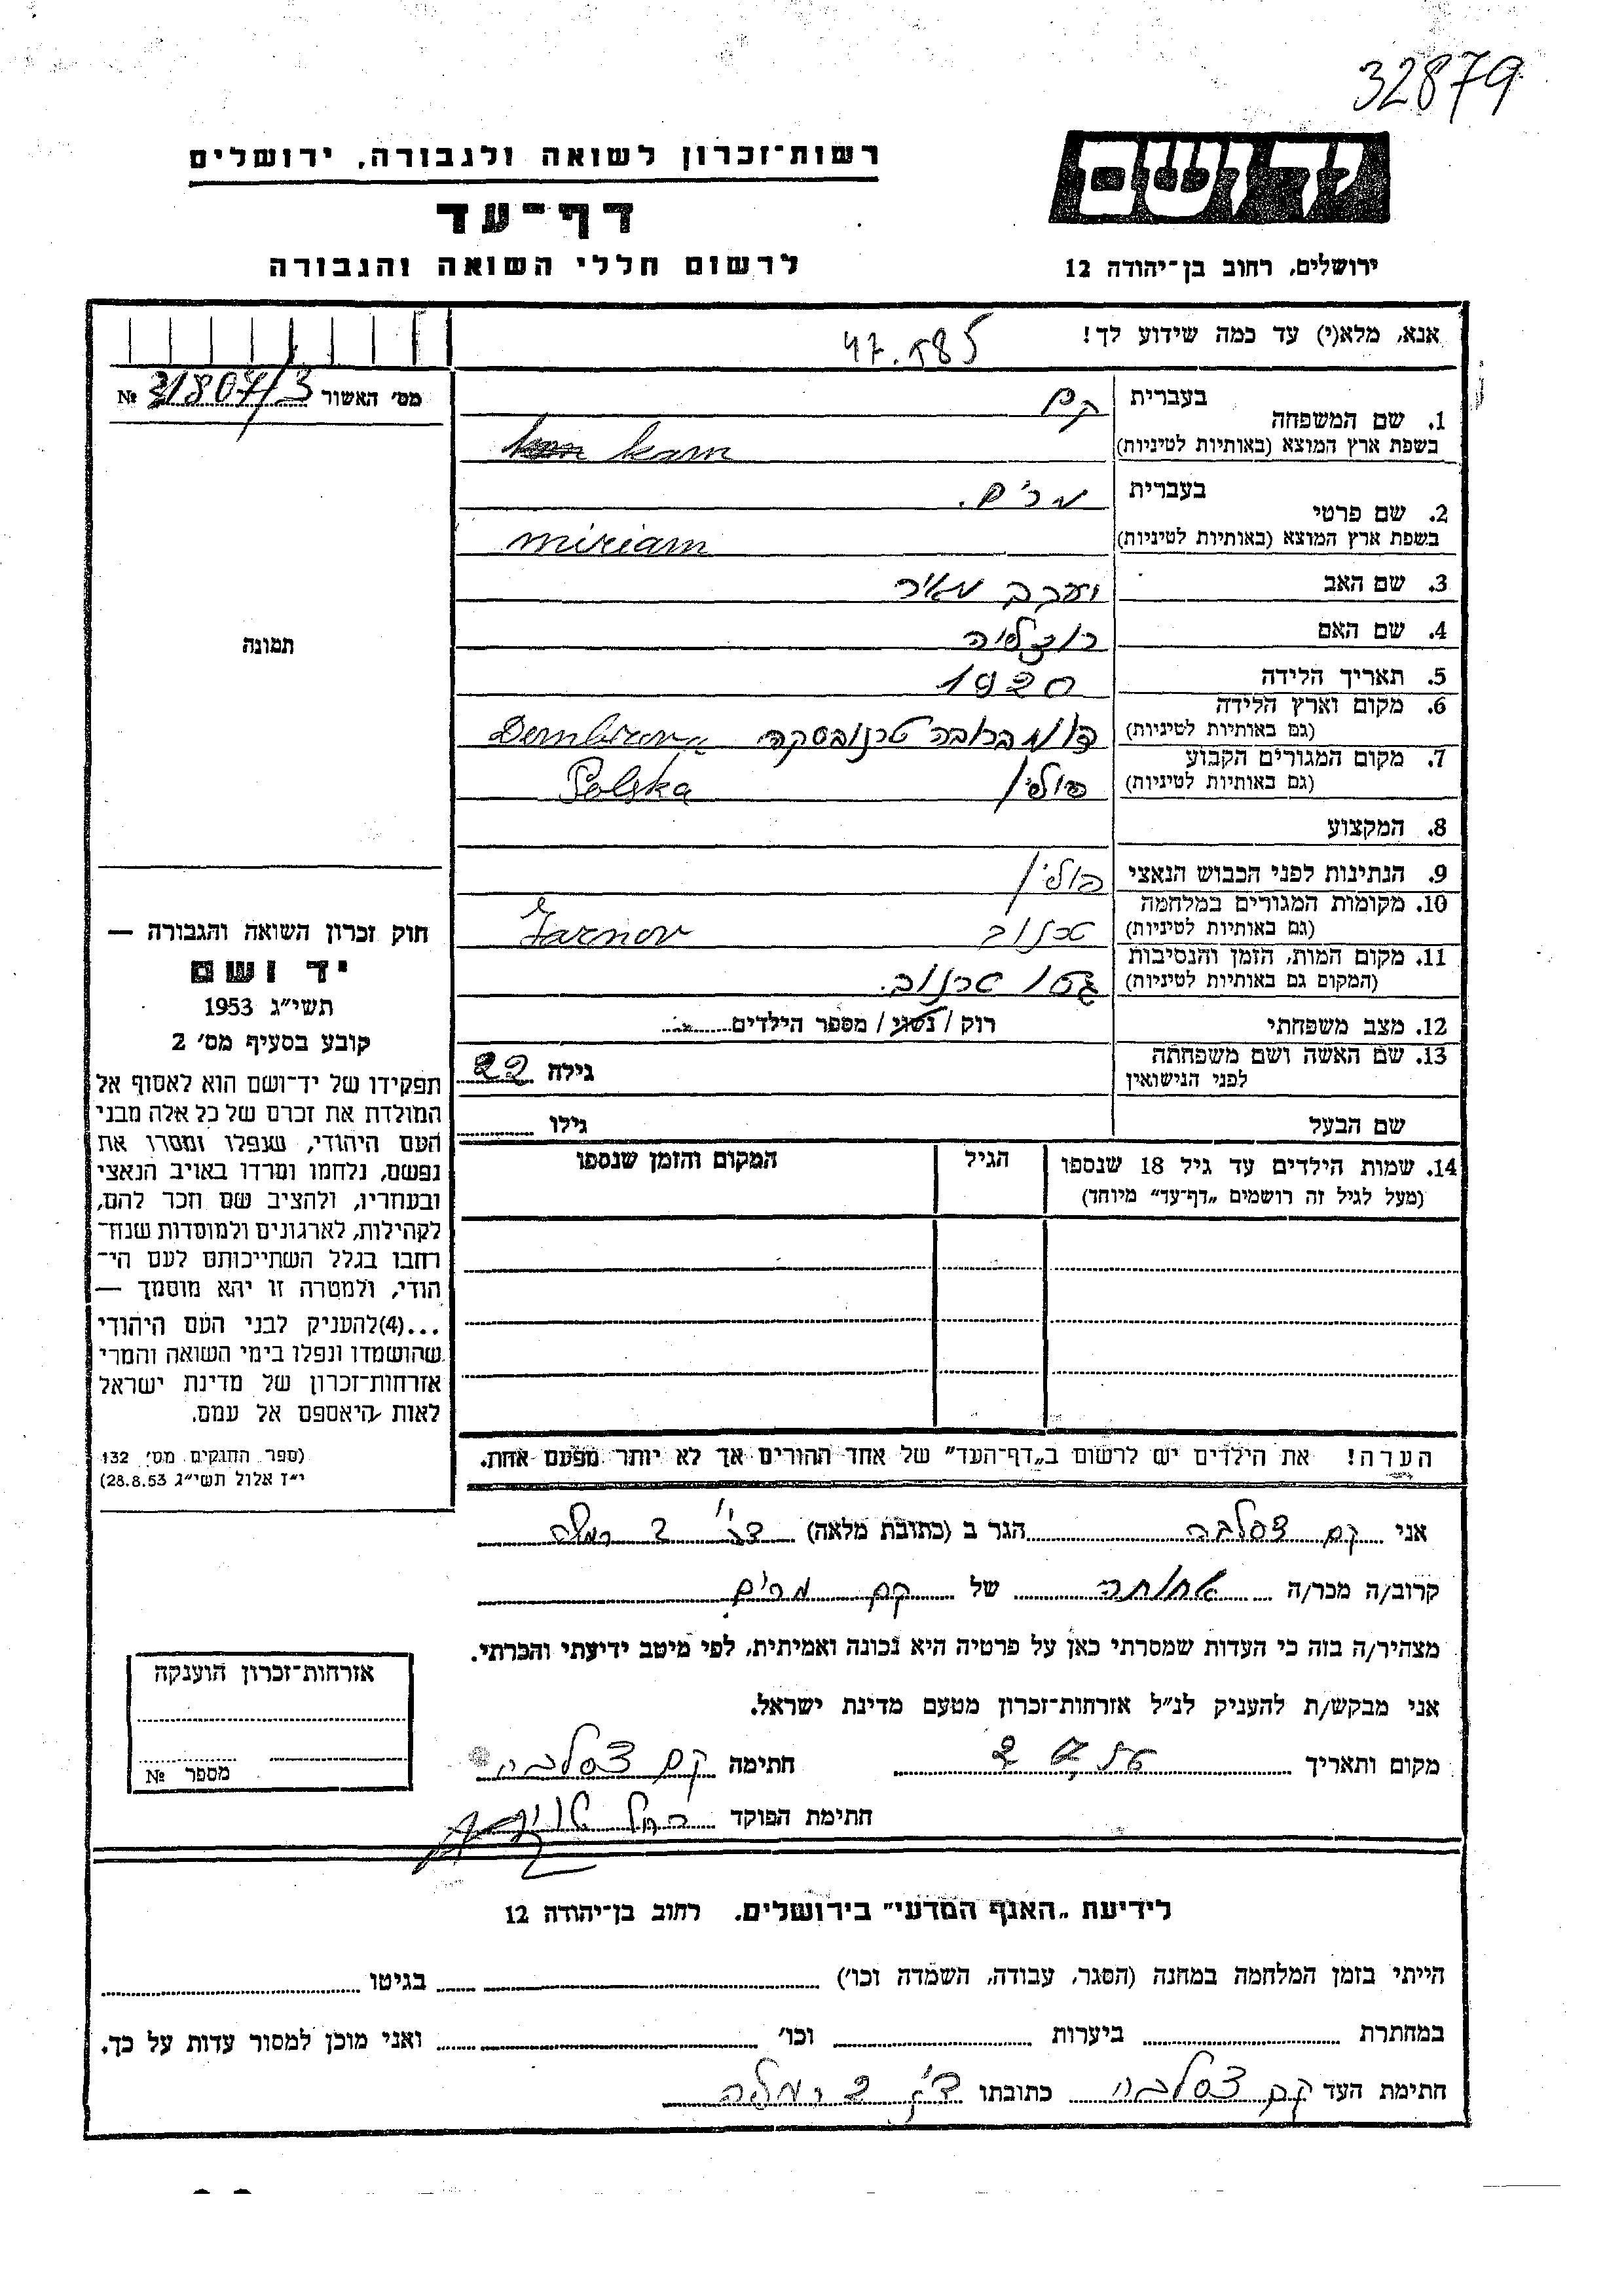 32879
יד ושם
רשות־זכרון לשואה ולגבורה, ירושלים
דף־עד
לרשום חללי השואה והגבורה
ירושלים, רחוב בן־יהודה 12
אנא, מלא(י) עד כמה שידוע לך!
47.585
מס׳ האשור 31807/3 №
1. שם המשפחה בעברית קם
בשפת ארץ המוצא (באותיות לטיניות) kam
2. שם פרטי בעברית מרים.
בשפת ארץ המוצא (באותיות לטיניות) miriam
3. שם האב יעקב מאיר
4. שם האם רוצליה
5. תאריך הלידה 1920
6. מקום וארץ הלידה (גם באותיות לטיניות) דומברובה טרנובסקה Dembrova
7. מקום המגורים הקבוע (גם באותיות לטיניות) פולין Polska
8. המקצוע
9. הנתינות לפני הכבוש הנאצי פולין
10. מקומות המגורים במלחמה (גם באותיות לטיניות) טרנוב Tarnov
11. מקום המות, הזמן והנסיבות (המקום גם באותיות לטיניות) גטו טרנוב.
12. מצב משפחתי רוק / נשוי / מספר הילדים
13. שם האשה ושם משפחתה לפני הנישואין גילה 22
שם הבעל גילו
14. שמות הילדים עד גיל 18 שנספו הגיל המקום והזמן שנספו
(מעל לגיל זה רושמים „דף־עד״ מיוחד)
הערה! את הילדים יש לרשום ב„דף־העד״ של אחד ההורים אך לא יותר מפעם אחת.
תמונה
חוק זכרון השואה והגבורה —
יד ושם
תשי״ג 1953
קובע בסעיף מס׳ 2
תפקידו של יד־ושם הוא לאסוף אל
המולדת את זכרם של כל אלה מבני
העם היהודי, שנפלו ומסרו את
נפשם, נלחמו ומרדו באויב הנאצי
ובעוזריו, ולהציב שם וזכר להם,
לקהילות, לארגונים ולמוסדות שנח־
רבו בגלל השתייכותם לעם הי־
הודי, ולמטרה זו יהא מוסמך —
...(4)להעניק לבני העם היהודי
שהושמדו ונפלו בימי השואה והמרי
אזרחות־זכרון של מדינת ישראל
לאות היאספם אל עמם.
(ספר החוקים מס׳ 132
י״ז אלול תשי״ג 28.8.53)
אני קם צסלבה הגר ב (כתובת מלאה) 2 רמלה
קרוב/ה מכר/ה אחותה של קם מרים
מצהיר/ה בזה כי העדות שמסרתי כאן על פרטיה היא נכונה ואמיתית, לפי מיטב ידיעתי והכרתי.
אני מבקש/ת להעניק לנ״ל אזרחות־זכרון מטעם מדינת ישראל.
מקום ותאריך חתימה קם צסלבה
חתימת הפוקד
אזרחות־זכרון הוענקה
מספר №
לידיעת „האגף המדעי״ בירושלים, רחוב בן־יהודה 12
הייתי בזמן המלחמה במחנה (הסגר, עבודה, השמדה וכו׳) בגיטו
במחתרת ביערות וכו׳ ואני מוכן למסור עדות על כך.
חתימת העד קם צסלבה כתובתו 2 רמלה